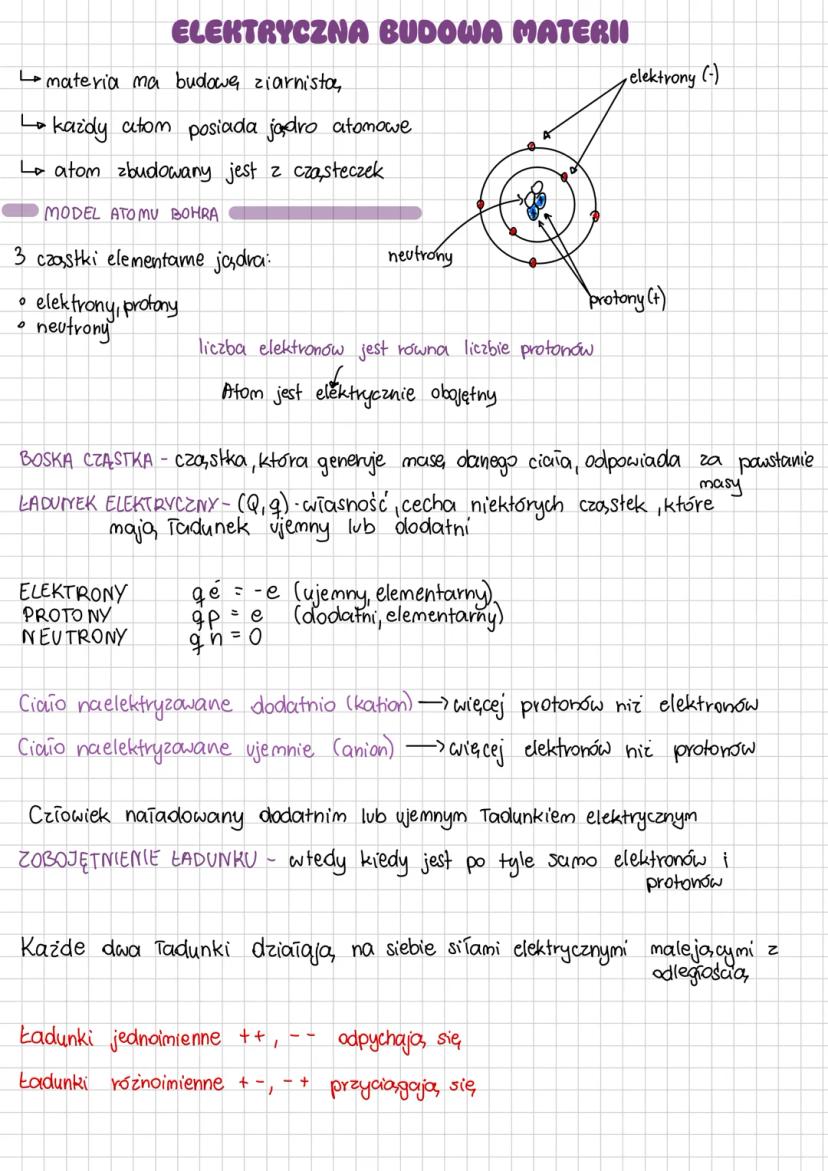 ELEKTRYCZNA BUDOWA MATERII
↳ materia ma budowę ziarnistą
↳ każdy atom posiada jądro atomowe
↳ atom zbudowany jest z cząsteczek
elektrony (-)
MODEL ATOMU BOHRA
neutrony
protony (+)
3 cząstki elementarne jądra:
• elektrony, protony
• neutrony
liczba elektronów jest równa liczbie protonów
Atom jest elektrycznie obojętny
BOSKA CZĄSTKA - cząstka, która generuje masę danego ciała, odpowiada za powstanie
masy
ŁADUNEK ELEKTRYCZNY - (Q, q) - własność, cecha niektórych cząstek, które
mają ładunek ujemny lub dodatni
ELEKTRONY qé = -e (ujemny, elementarny)
PROTONY qp = e (dodatni, elementarny)
NEUTRONY qn = 0
Ciało naelektryzowane dodatnio (kation) → więcej protonów niż elektronów
Ciało naelektryzowane ujemnie (anion) → więcej elektronów niż protonów
Człowiek naładowany dodatnim lub ujemnym ładunkiem elektrycznym
ZOBOJĘTNIENIE ŁADUNKU - wtedy kiedy jest po tyle samo elektronów i
protonów
Każde dwa ładunki działają na siebie siłami elektrycznymi malejącymi z
odległością
Ładunki jednoimienne ++, -- odpychają się
Ładunki różnoimienne +-, -+ przyciągają się